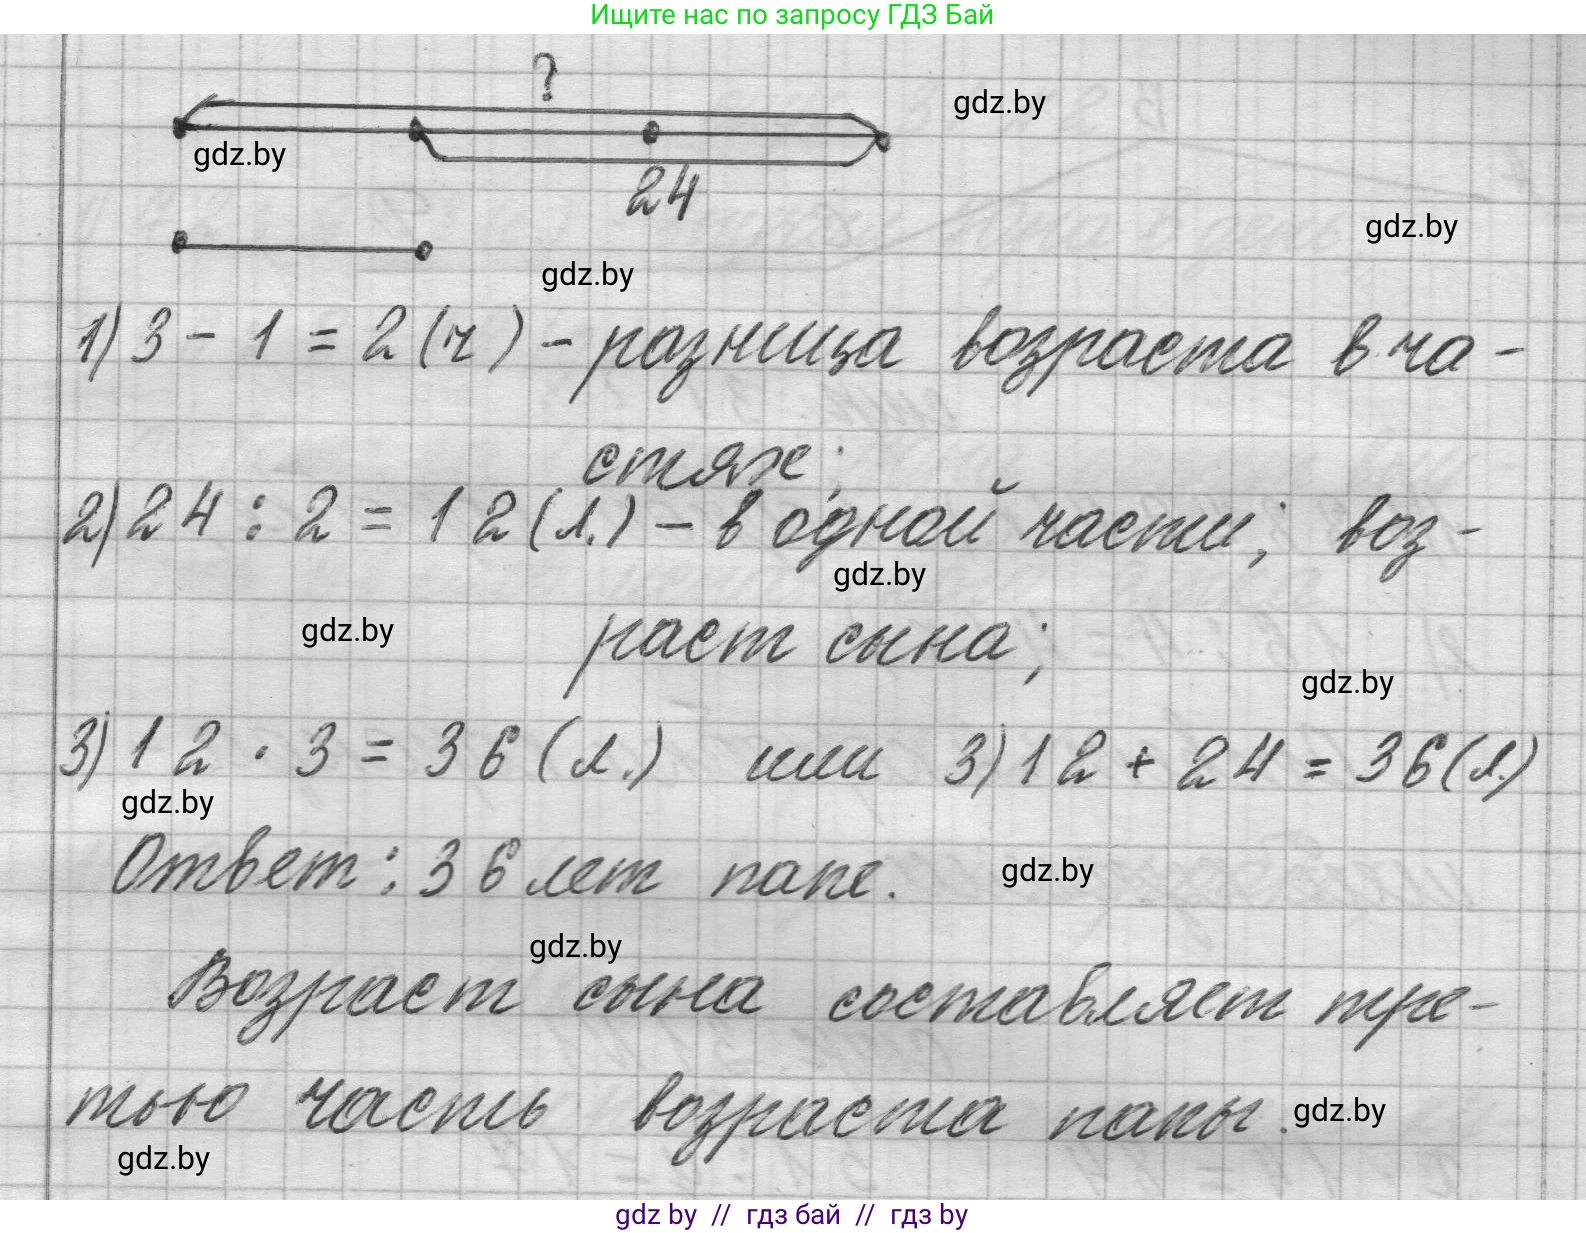 Ищите нас по запросу ГДЗ Бай
?
gdz.by
gdz.by
24
gdz.by
gdz.by
1) 3 - 1 = 2 (ч) - разница возраста в ча-
стях;
2) 24 : 2 = 12 (л.) - в одной части; воз-
gdz.by
gdz.by
раст сына;
gdz.by
3) 12 · 3 = 36 (л.) или 3) 12 + 24 = 36 (л.)
gdz.by
Ответ: 36 лет папе.
gdz.by
gdz.by
Возраст сына составляет тре-
тью часть возраста папы.
gdz.by
gdz.by
gdz by // гдз бай // гдз by